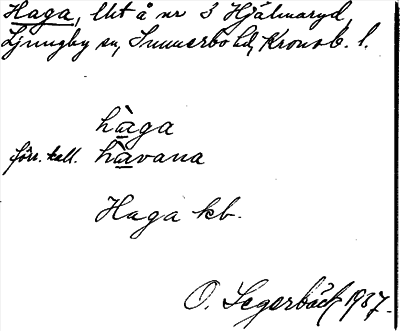 Haga, lht å nr 3 Hjälmaryd,
Ljungby sn, Sunnerbo hd, Kronob. l.
hàga
förr. kall. hàvana
Haga kb.
O. Segerbäck 1937.